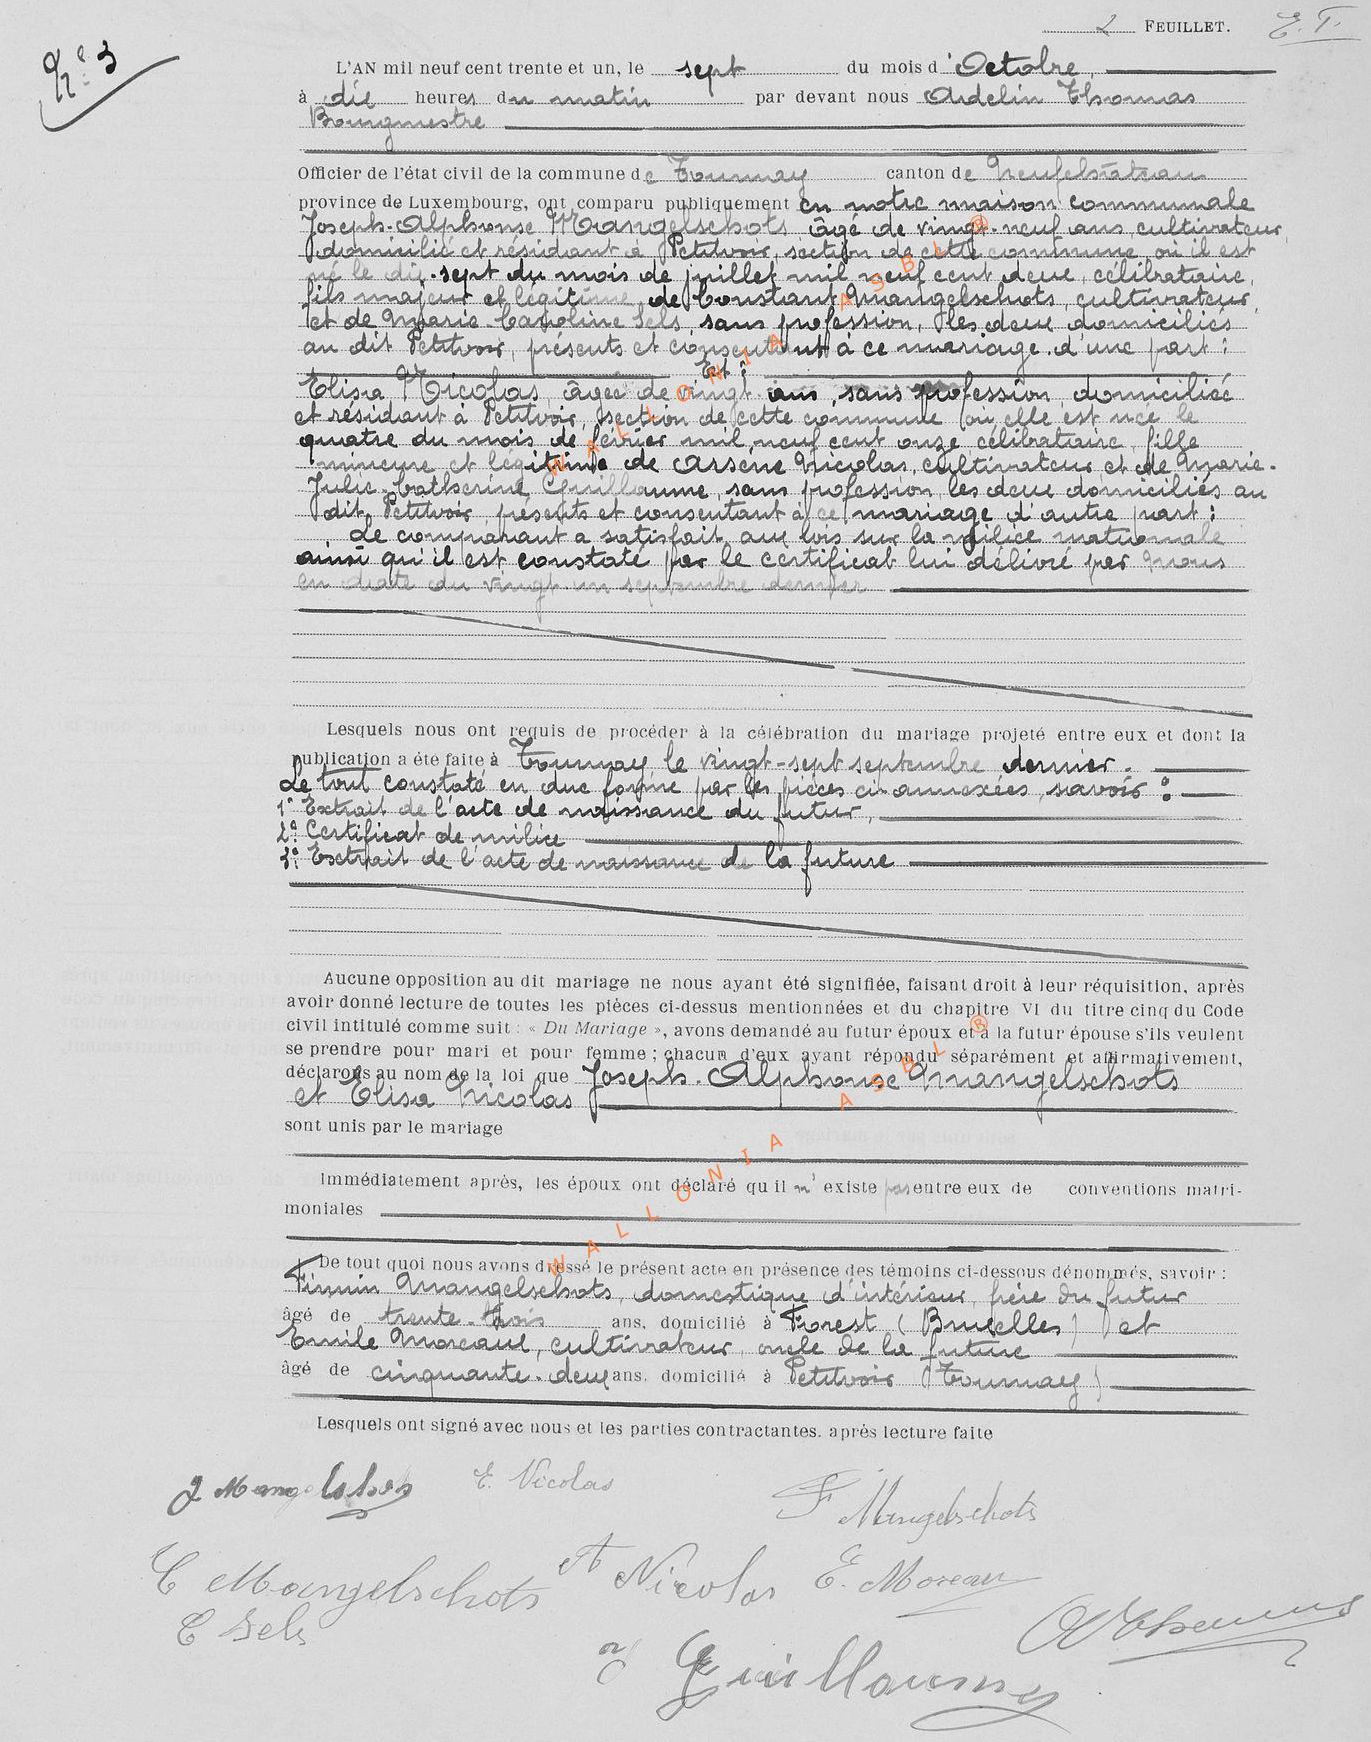 2 FEUILLET. E. T.
N° 3
L'AN mil neuf cent trente et un, le sept du mois d'Octobre,
à dix heures du matin par devant nous Ardelin Thomas
Bourgmestre
Officier de l'état civil de la commune de Tournay canton de Neufchâteau
province de Luxembourg, ont comparu publiquement en notre maison communale
Joseph-Alphonse Mangelschots âgé de vingt-neuf ans, cultivateur,
domicilié et résidant à Petitvoir, section de cette commune où il est
né le dix-sept du mois de juillet mil neuf cent deux, célibataire,
fils majeur et légitime de Constant Mangelschots, cultivateur,
et de Marie-Caroline Sels, sans profession, les deux domiciliés
au dit Petitvoir, présents et consentant à ce mariage. d'une part :
Et :
Elisa Nicolas, âgée de vingt ans, sans profession, domiciliée
et résidant à Petitvoir, section de cette commune où elle est née le
quatre du mois de février mil neuf cent onze célibataire, fille
mineure et légitime de Arsène Nicolas, cultivateur et de Marie-
Julie-Catherine Guillaume, sans profession, les deux domiciliés au
dit Petitvoir, présents et consentant à ce mariage d'autre part :
Le comparant a satisfait aux lois sur la milice nationale
ainsi qu'il est constaté par le certificat lui délivré par nous
en date du vingt un septembre dernier
Lesquels nous ont requis de procéder à la célébration du mariage projeté entre eux et dont la
publication a été faite à Tournay le vingt-sept septembre dernier.
Le tout constaté en due forme par les pièces ci-annexées, savoir :
1° Extrait de l'acte de naissance du futur,
2° Certificat de milice
3° Extrait de l'acte de naissance de la future
Aucune opposition au dit mariage ne nous ayant été signifiée, faisant droit à leur réquisition, après
avoir donné lecture de toutes les pièces ci-dessus mentionnées et du chapitre VI du titre cinq du Code
civil intitulé comme suit : « Du Mariage », avons demandé au futur époux et à la futur épouse s'ils veulent
se prendre pour mari et pour femme ; chacun d'eux ayant répondu séparément et affirmativement,
déclarons au nom de la loi que Joseph-Alphonse Mangelschots
et Elisa Nicolas
sont unis par le mariage
Immédiatement après, les époux ont déclaré qu'il n'existe pas entre eux de conventions matri-
moniales
De tout quoi nous avons dressé le présent acte en présence des témoins ci-dessous dénommés, savoir :
Firmin Mangelschots, domestique d'intérieur, frère du futur
âgé de trente-trois ans, domicilié à Forest (Bruxelles) et
Emile Moreaux, cultivateur, oncle de la future
âgé de cinquante-deux ans, domicilié à Petitvoir (Tournay)
Lesquels ont signé avec nous et les parties contractantes. après lecture faite
J Mangelschots E. Nicolas F Mangelschots
C Mangelschots A Nicolas E. Moreau
C Sels Guillaume AThomas
WALLONIA ASBL ®
WALLONIA ASBL ®